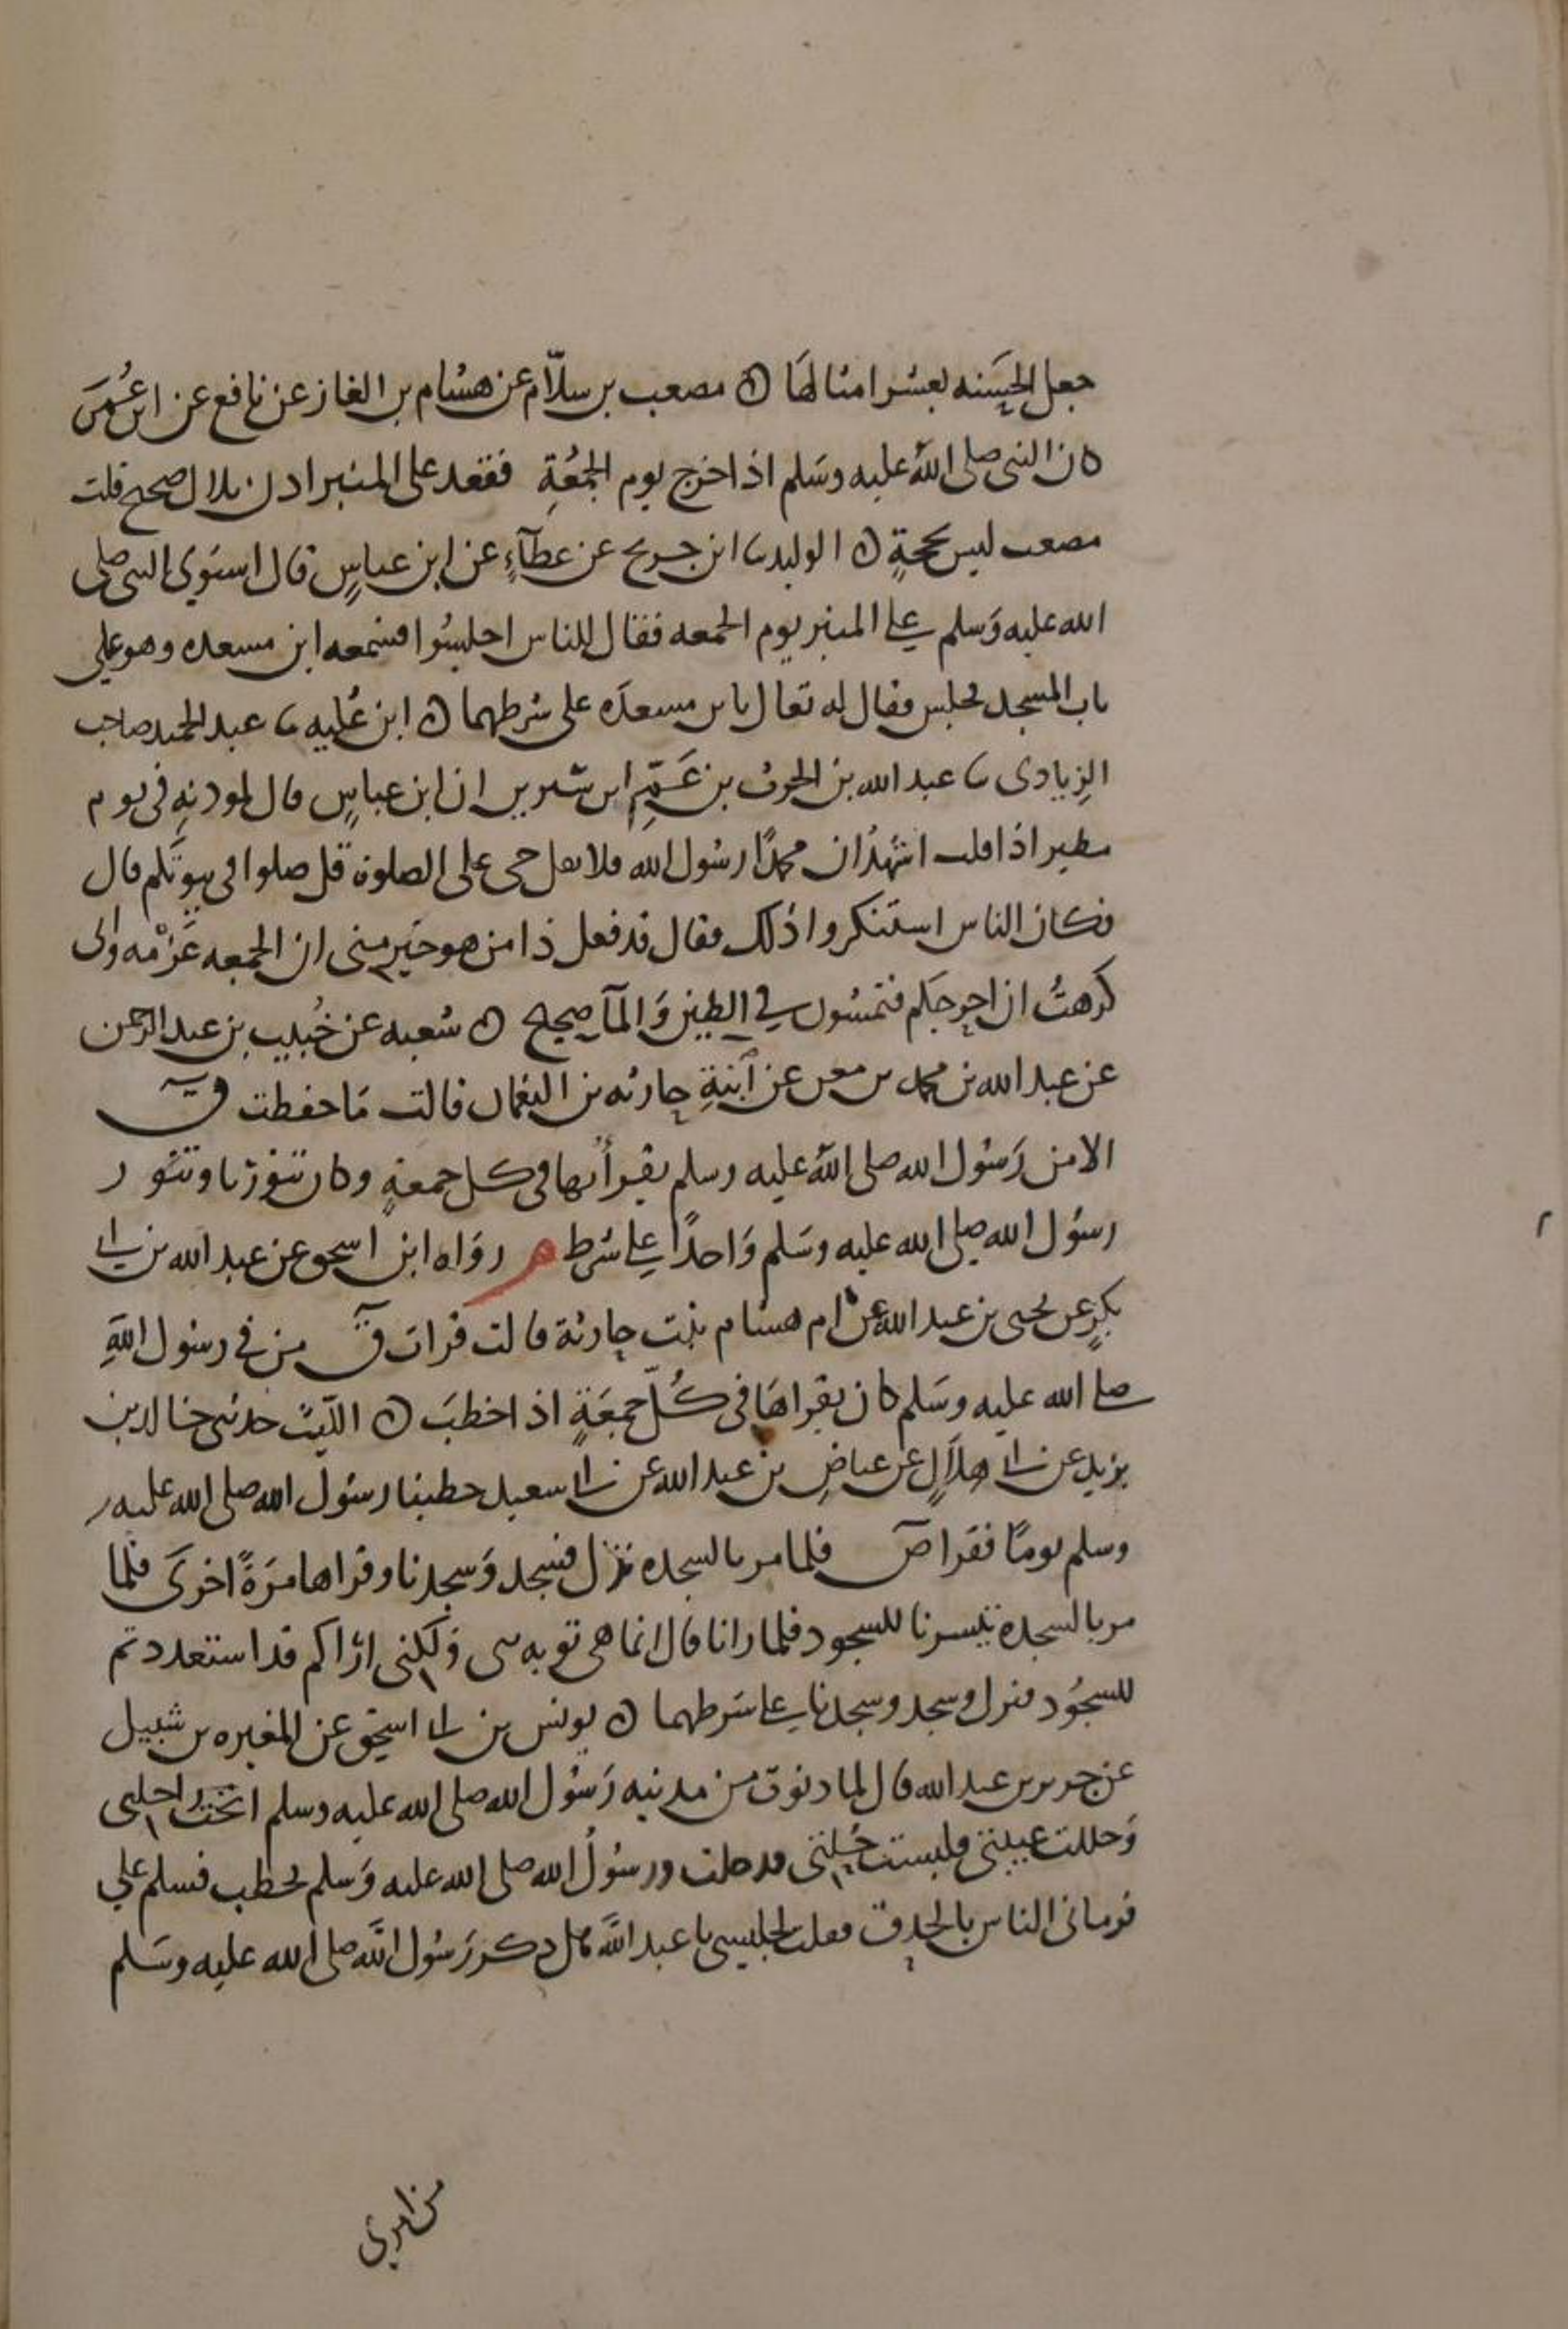 جعل الحسنه بعشر امثالها ه مصعب بن سلّام عن هشام بن الغاز عن نافع عن ابن عُمَر
كان النبي صلى الله عليه وسَلم اذا خرج يوم الجمُعَةِ فقعد على المنبر اذن بلال صحيح قلت
مصعب ليس بحجةٍ ه الوليد ثنا ابن جريج عن عطآءٍ عن ابن عباسٍ قال استوي النبي صلى
الله عليه وَسلم علي المنبر يوم الجمعه فقال للناس اجلسُوا فسَمعه ابن مسعده وهو علي
باب المسجد فجلس فقال له تعال يا بن مسعدَه على شرطهما ه ابن عُليه ثنا عبد الحميد صاحب
الزِيادى ثنا عبد الله بن الحرث بن عَمّ ابن سيرين ان ابن عباسٍ قال لموذنِهِ فى يوم
مطير اذا قلت اشهَدُ ان محمدًا رسُول الله فلا تقل حى على الصلوة قل صلوا فى بيوتكم قال
فكان الناس استنكروا ذلك فقال قد فعل ذا من هو خير منى ان الجمعه عَزْمه وانى
كرهتُ ان احرجكم فتمشُون في الطين وَالمآ صحيح ه شعبه عن خُبيب بن عبد الرحمن
عن عبد الله بن محمد بن معن عن ابنةِ حارثه بن النعمان قالت مَا حفظت قٓ
الا من رَسُول الله صلى الله عليه وسلم يقرأ بها فى كل جمعةٍ وكان تنورُنا وتنور
رسُول الله صلى الله عليه وسَلم وَاحدًا علي شرط م رواه ابن اسحق عن عبد الله بن ابي
بكرٍ عن يحيى بن عبد الله عن ام هشام بنت حارثة قالت قرات قٓ من في رسُول اللهِ
صلي الله عليه وسَلم كان يقراهَا فى كُلّ جمعَةٍ اذا خطبَ ه الليث حدثنى خالد بن
يزيد عن ابن ابي هلَالٍ عن عياضِ بن عبد الله عن ابي سعيد خطبنا رسُول الله صلى الله عليه
وسلم يومًا فقرا صٓ فلما مر بالسجده نزل فسجد وَسجدنا وقراها مَرةً اخرَى فلما
مر بالسجده تيسرنا للسجود فلما رانا قال انما هى توبه نبى وَلكنى اراكم قد استعددتم
للسجُود فنزل وسجد وسجدنا علي شرطهما ه يونس بن ابي اسحٰق عن المغيره بن شبيل
عن جرير بن عبد الله قال لما دنوت من مدينه رَسُول الله صلى الله عليه وسلم انخت راحلتى
وَحللت عيبتى ولبست حُلتى فدخلت ورسُولُ الله صلى الله عليه وَسلم يخطب فسلم علي
فرمانى الناس بالحدق فقلت لجليسى يا عبد اللهَ هل ذكر رَسُول الله صلى الله عليه وسَلم